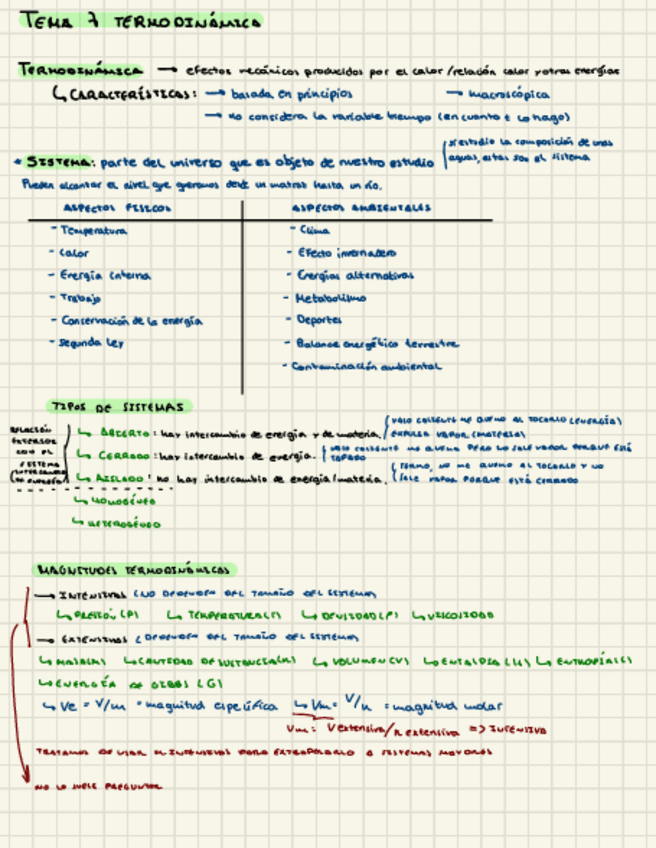 TEMA 7 TERMODINÁMICA
TERMODINÁMICA → efectos mecánicos producidos por el calor/relación calor y otras energías
↳ CARACTERÍSTICAS: → basada en principios → macroscópica
→ no considera la variable tiempo (en cuanto t lo hago)
* SISTEMA: parte del universo que es objeto de nuestro estudio
si estudio la composición de unas
aguas, estas son el sistema
Pueden alcanzar el nivel que queramos desde un matraz hasta un río.
ASPECTOS FISICOS ASPECTOS AMBIENTALES
- Temperatura - Clima
- Calor - Efecto invernadero
- Energía interna - Energías alternativas
- Trabajo - Metabolismo
- Conservación de la energía - Deportes
- Segunda Ley - Balance energético terrestre
- Contaminación ambiental
TIPOS DE SISTEMAS
RELACIÓN
EXTERIOR
CON EL
SISTEMA
↳ ABIERTO: hay intercambio de energía y de materia.
VASO CALIENTE ME QUEMO AL TOCARLO (ENERGÍA)
EXPULSA VAPOR (MATERIA)
↳ CERRADO: hay intercambio de energía.
VASO CALIENTE ME QUEMO PERO NO SALE VAPOR PORQUE ESTÁ
TAPADO
↳ AISLADO: no hay intercambio de energía/materia.
TERMO, NO ME QUEMO AL TOCARLO Y NO
SALE VAPOR PORQUE ESTÁ CERRADO
↳ HOMOGÉNEO
↳ HETEROGÉNEO
MAGNITUDES TERMODINÁMICAS
→ INTENSIVAS (NO DEPENDEN DEL TAMAÑO DEL SISTEMA)
↳ PRESIÓN (P) ↳ TEMPERATURA (T) ↳ DENSIDAD (P) ↳ VISCOSIDAD
→ EXTENSIVAS (DEPENDEN DEL TAMAÑO DEL SISTEMA)
↳ MASA (m) ↳ CANTIDAD DE SUSTANCIA (n) ↳ VOLUMEN (V) ↳ ENTALPIA (H) ↳ ENTROPÍA (S)
↳ ENERGÍA DE GIBBS (G)
↳ Ve = V/m = magnitud específica ↳ Vm = V/n = magnitud molar
Vm = Vextensiva/n extensiva => INTENSIVA
TRATAMOS DE USAR M. INTENSIVAS PARA EXTRAPOLARLO A SISTEMAS MAYORES
NO LO SUELE PREGUNTAR